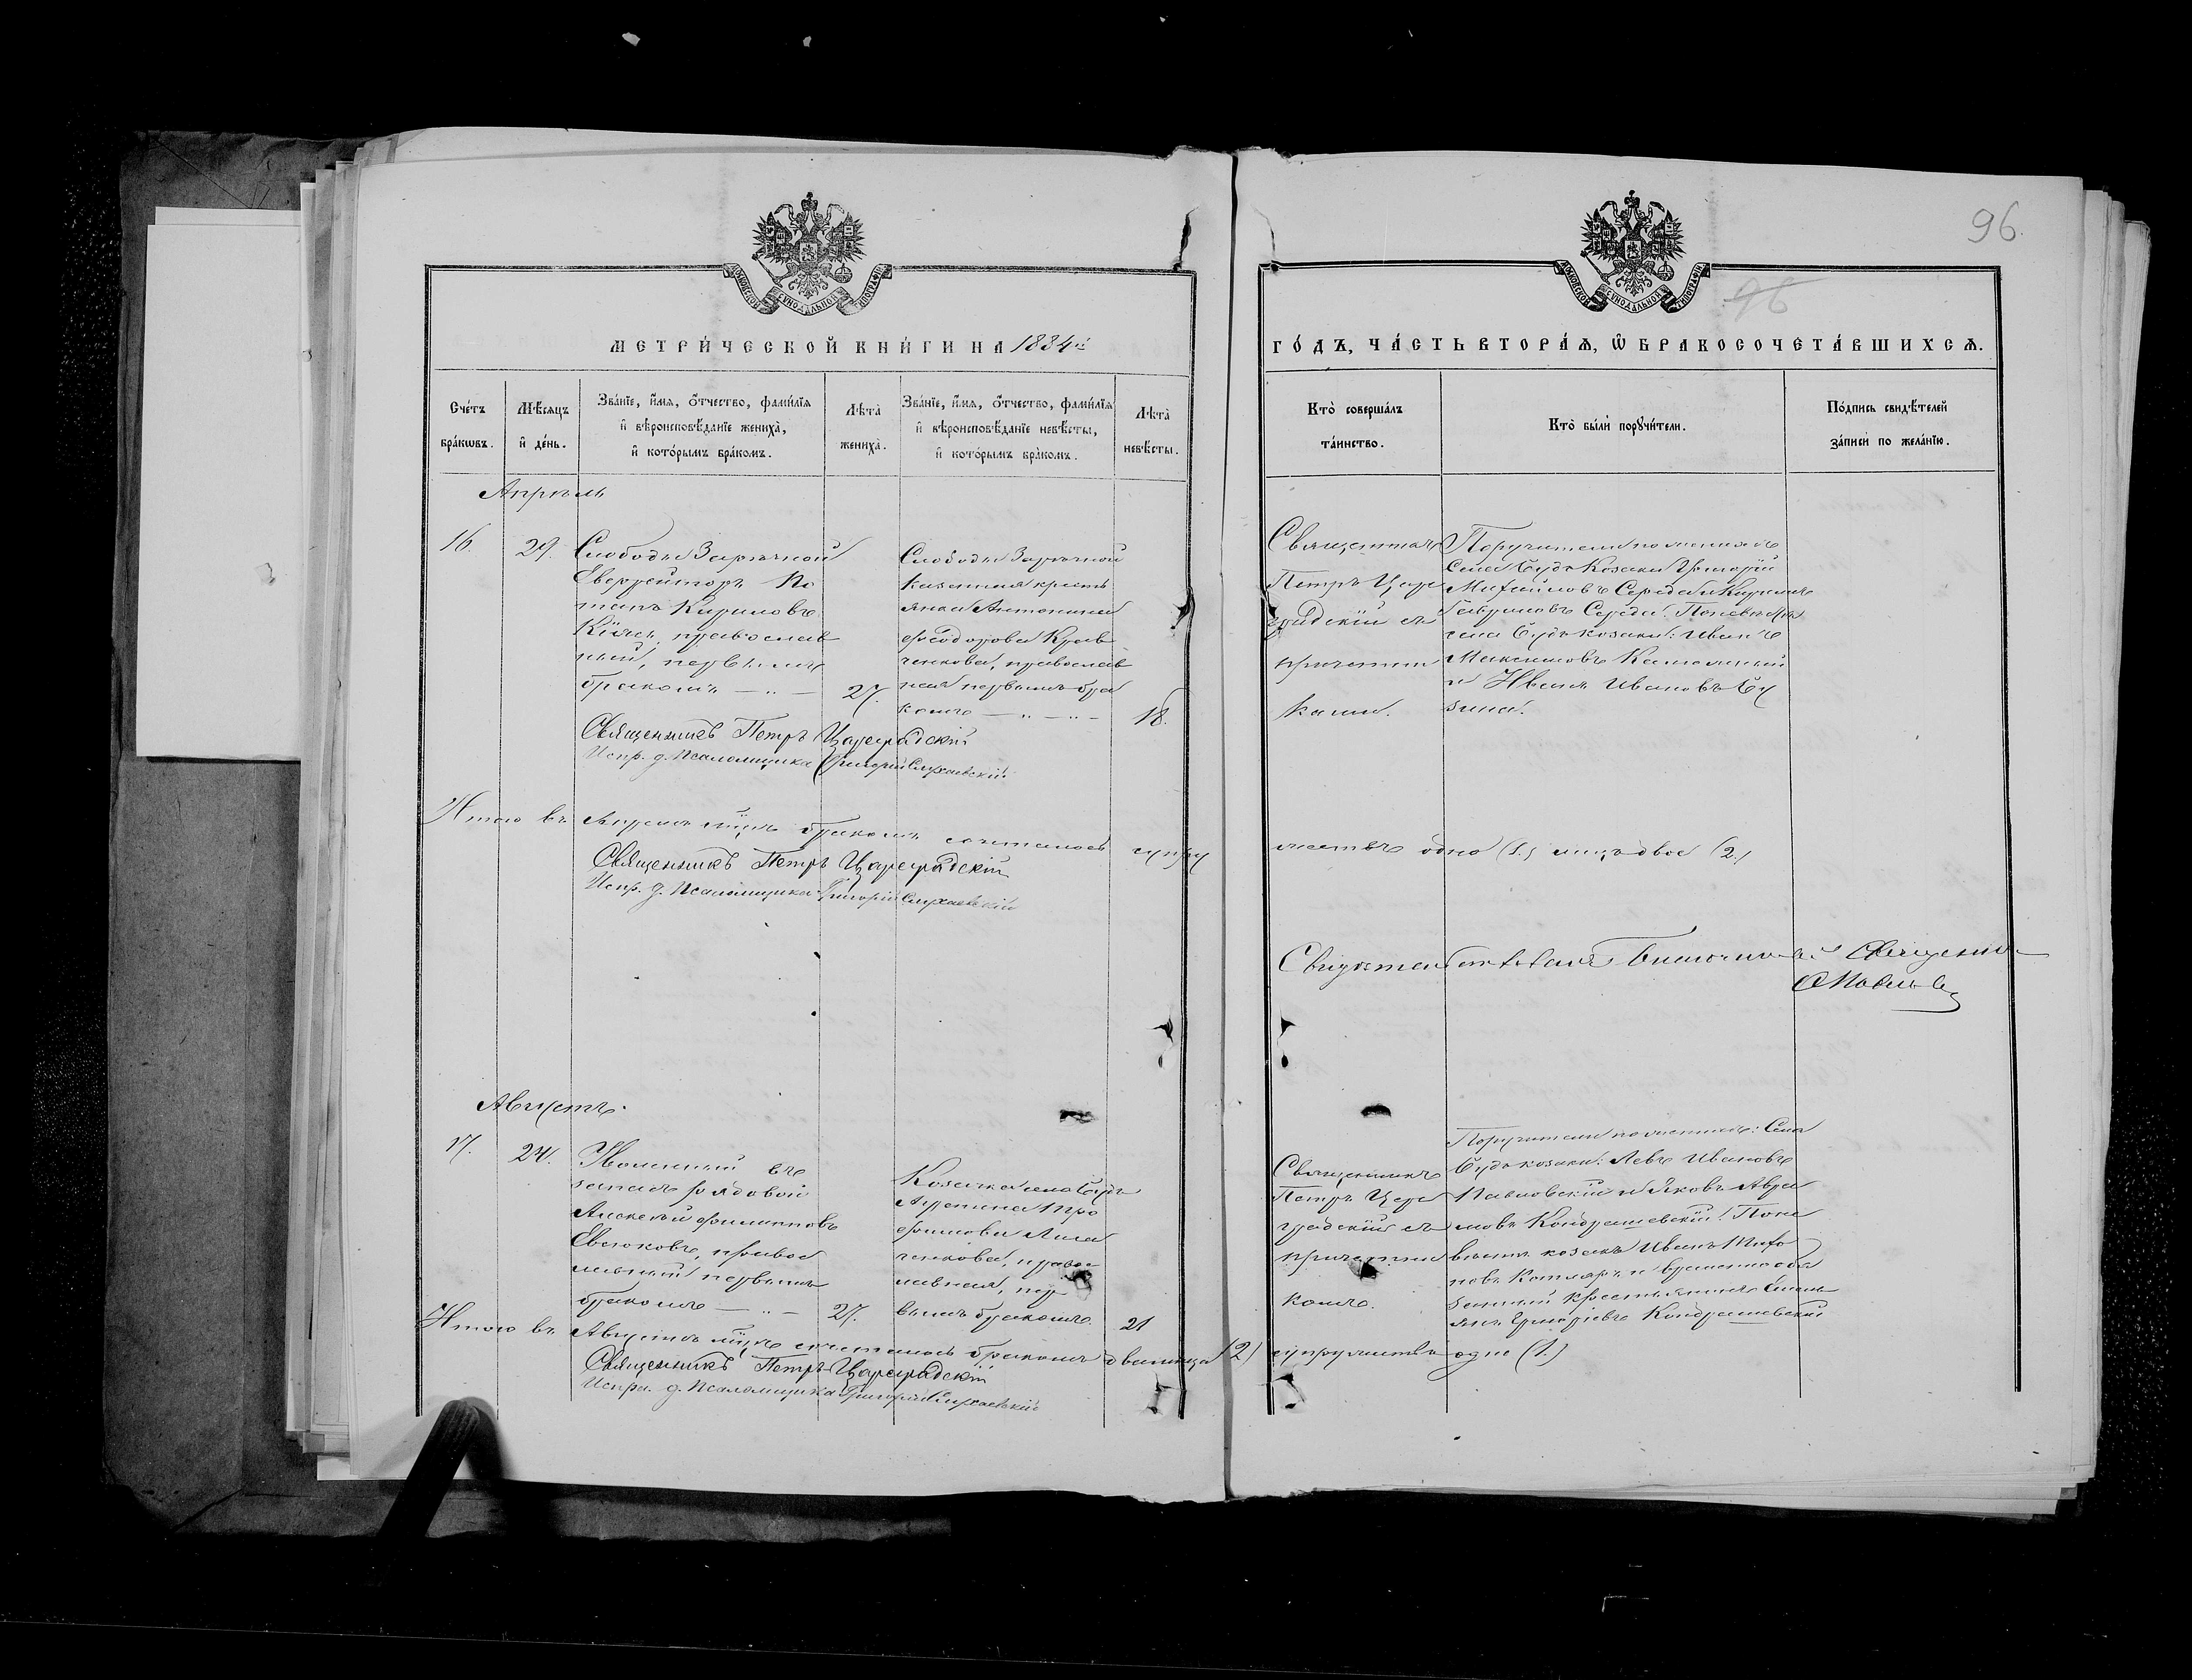 96.
96
МОСКОВСКОЙ СѴНОДАЛЬНОЙ ТИПОГРАФІИ
МОСКОВСКОЙ СѴНОДАЛЬНОЙ ТИПОГРАФІИ
МЕТРИ́ЧЕСКОЙ КНИ́ГИ НА 1884й
ГО́ДЪ, ЧА́СТЬ ВТОРА́Я, Ѡ БРАКОСОЧЕТА́ВШИХСЯ.
Сче́тъ бра́кѡвъ.
Мѣ́сяцъ и҆ де́нь.
Зва́нїе, и҆́мя, ѻ҆́тчество, фамѝлїя
и҆ вѣроисповѣ́данїе жениха̀,
и҆ кото́рымъ бра́комъ.
Лѣта̀ жениха̀.
Зва́нїе, и҆́мя, ѻ҆́тчество, фамѝлїя
и҆ вѣроисповѣ́данїе невѣ́сты,
и҆ кото́рымъ бра́комъ.
Лѣта̀ невѣ́сты.
Кто̀ соверша́лъ
та́инство.
Кто̀ бы́ли порꙋчи́тели.
По́дпись свидѣ́телей
за́писи по жела́нїю.
Апрѣль
16.
29.
Слободы Зарѣчной
Ефрейторъ По
тапъ Кириловъ
православ
ный, первымъ
бракомъ — „ —
27.
Слободы Зарѣчной
казенная крестъ
янка Антонина
Феодорова Крав
ченкова, православ
ная первымъ бра
комъ — „ — „ —
18.
Священникъ
Петръ Царе
градскій съ
причетни
ками.
Поручители по женихѣ
села козаки Григорій
Михайловъ Середа и Кирилъ
Гавриловъ Середа. По невѣстѣ
села козаки: Иванъ
Максимовъ
и Иванъ Ивановъ
Священникъ Петръ Цареградскій
Испр. д. Псаломщика Григорій Слухаевскій
Итого въ Апрѣлѣ мцѣ бракомъ сочеталось супру
жествъ одно (1.) лицъ двое (2.)
Священникъ Петръ Цареградскій
Испр. д. Псаломщика Григорій Слухаевскій
Свидетельствовалъ Благочинный Священник
Августъ.
17.
24.
Уволенный въ
запасъ рядовой
Алексѣй Филипповъ
Евтюховъ, правос
лавный первымъ
бракомъ — „ —
27.
Козачка села
Агрепина Тро
фимова
ченкова, правос
лавная, пер
вымъ бракомъ.
21
Священникъ
Петръ Царе
градскій съ
причетни
комъ.
Поручители по женихѣ: Села
козаки: Левъ Ивановъ
Павловскій и Яковъ Авра
мовъ Кондрашевскій. По не
вѣстѣ козакъ Иванъ
новъ Котляръ и временнообя
занный крестьянинъ
Григоріевъ Кондрашевскій
Итого въ Августѣ мцѣ сочеталось бракомъ двоелица (2)
супружество одно (1.)
Священникъ Петръ Цареградскій
Испра. д. Псаломщика Григорій Слухаевскій